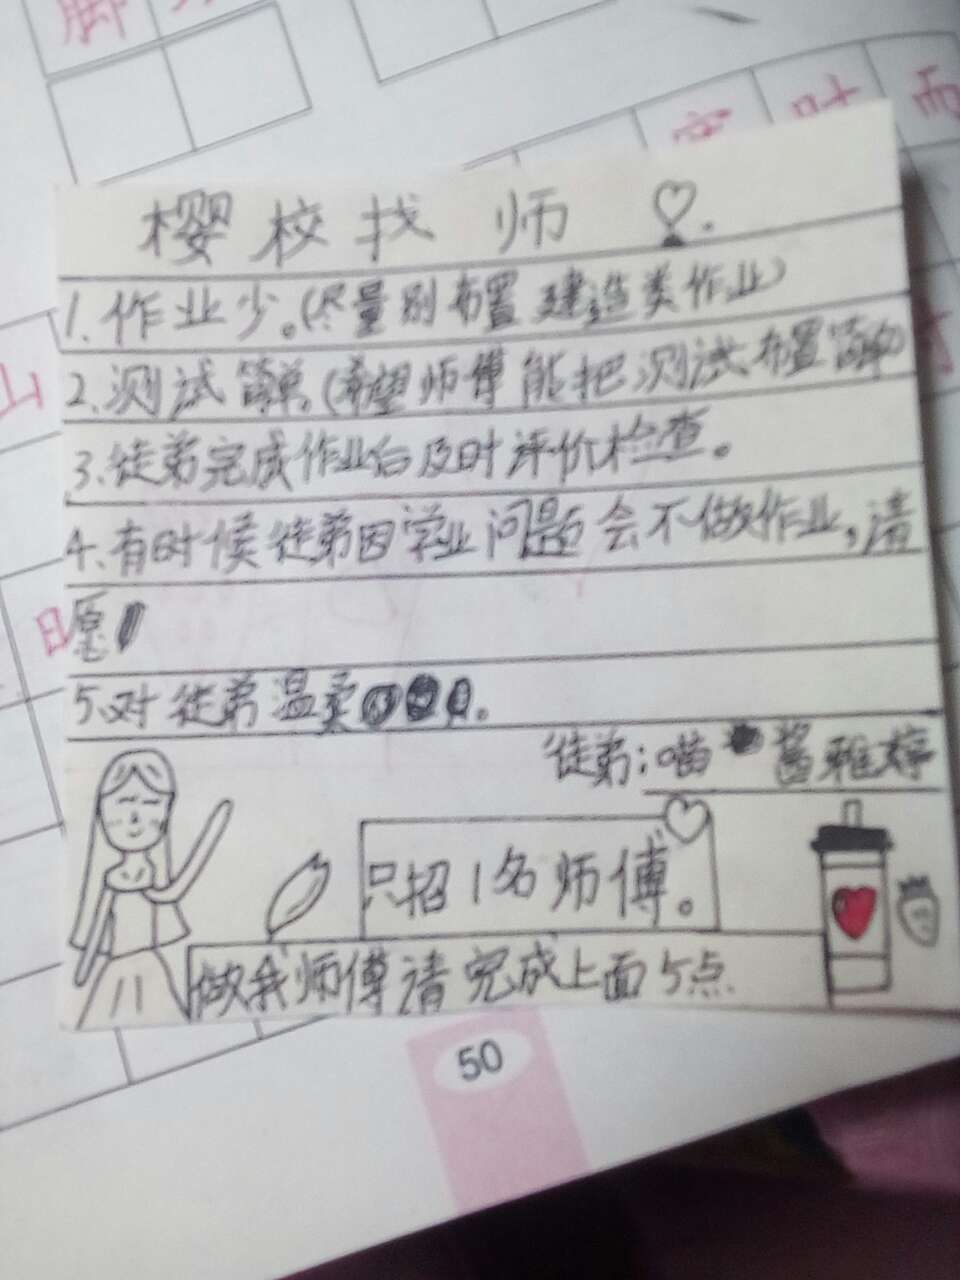 脚
字时而
山
日
樱校找师
1.作业少。(尽量别布置建造类作业)
2.测试简单。(希望师傅能把测试布置简单)
3.徒弟完成作业后及时评价检查。
4.有时候徒弟因学业问题会不做作业,请
愿
5.对徒弟温柔。
徒弟:喵酱雅婷
只招1名师傅。
做我师傅请完成上面5点
50